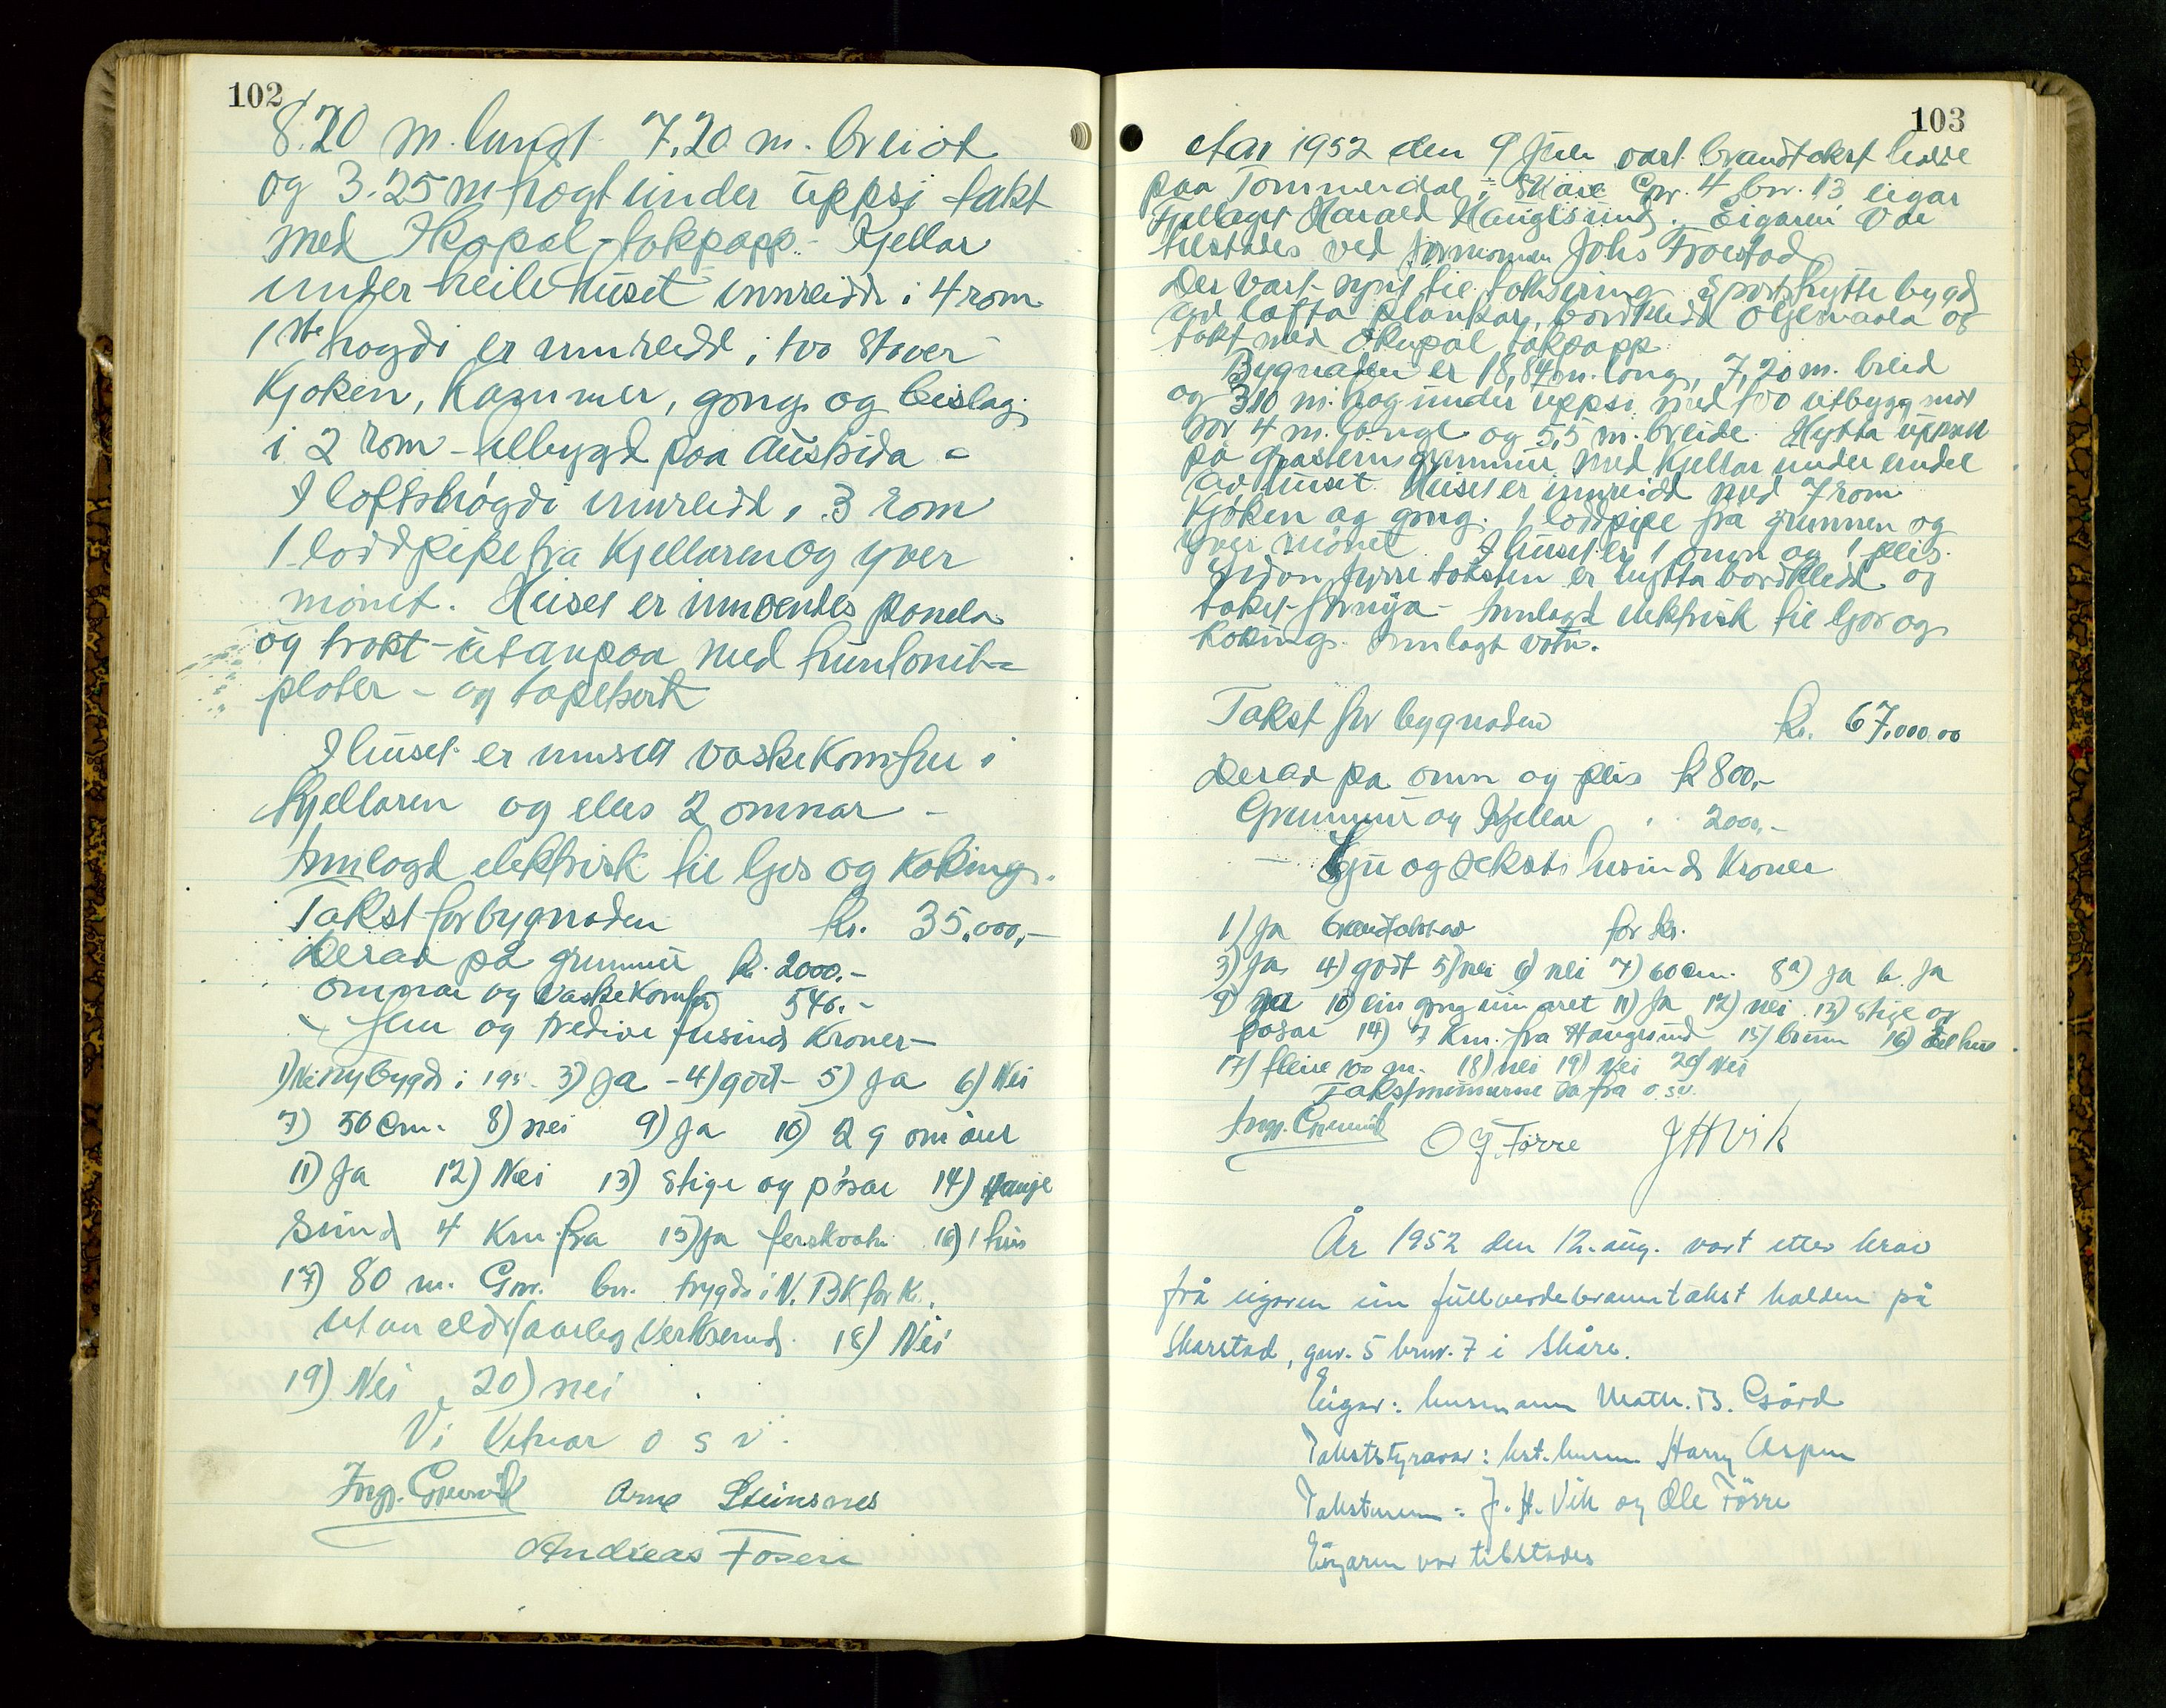 102
8.20 m. langt 7,20 m. breidt
og 3.25 m høgt under uppsi takt
med Ikopal-takpapp.- Kjellar
under heile huset innreidd i 4 rom
1ste høgdi er innreidd i tvo stover
Kjøken, Kammer, gong og beislag
i 2 rom - utbygd paa austsida -
I loftshøgdi innreidd i 3 rom
1 loddpipe fra Kjellaren og yver
mønet. Huset er innvendes panela
og trekt - utanpaa med huntonit-
plater - og tapetsert
I huset er innsett vaskekomfur i
Kjellaren og elles 2 omnar -
Innlagd elektrisk til ljos og koking.
Takst for bygnaden kr. 35.000,-
Derad på grunnmur kr. 2000.-
omnar og vaskekomfur 546.-
- fem og tredive tusind Kroner -
1) Nei nybygd i 195. 3) Ja - 4) godt - 5) Ja 6) Nei
7) 50 Cm. 8) nei 9) Ja 10) 2 g om året
11) Ja 12) Nei 13) Stige og pøsar 14) Hauge
sund 4 Km fra 15) Ja ferskvatn 16) 1 hus
17) 80 m. Gnr. bnr. trygda i N. B K for Kr.
utan eldsfaarleg Verksemd. 18) Nei
19) Nei, 20) nei
Vi Vitnar o s v.
Ingv. Arne Steinsnes
Andreas Fosen
103
Aar 1952 den 9 Juli vart brandtakst halde
paa Tommerdal i Skåre Gnr. 4 bnr. 13 eigar
Fjellaget Harald Haugesund. Eigaren var
tilstades ved formannen Johs Troestad
Der vart synt til taksering Sportshytte bygd
av lafta plankar, bordkledd oljemaala og
takt med Ikopal takpapp
Bygnaden er 18,84 m. lang, 7,20 m. breid
og 310 m. høg under uppsi med tvo utbygg mot
nor 4 m. lange og 5,5 m. breide. Hytta uppsett
på graasteins grunnmur med Kjellar under endel
av huset. Huset er innreidd med 7 rom
Kjøken og gong. 1 loddpipe frå grunnen og
yver mønet. I huset er 1 omn og 1 peis.
Sidan fyrre taksten er hytta bordkledd og
taket fornya - Innlagd elektrisk til ljos og
koking. Innlagt vatn.
Takst for bygnaden kr. 67.000.00
Derad på omn og peis kr 800,-
Grunnmur og Kjellar " 2000,-
- Sju og seksti tusind Kroner
1) Ja Brandtakstar for kr.
3) Ja 4) godt 5) nei 6) nei 7) 60 cm. 8a) ja b. Ja
9) Ja 10) ein gong um aret 11) Ja 12) nei 13) Stige og
pøsar 14) 7 Km. fra Haugesund 15) brunn 16) hus
17) fleire 100 m. 18) nei 19) Nei 20) Nei
Takstmennerne o.s.v.
Ingv. O G. Førre J H Vik
År 1952 den 12. aug. vart etter krav
frå eigaren ein fullverdebranntakst halden på
Skarstad, gnr. 5 brnr. 7 i Skåre.
Eigar: husmann Math. B. Gård
Takststyrarar: kst. lensm. Harry Aspen
Takstmenn: J. H. Vik og Ole Førre
Eigaren var tilstades